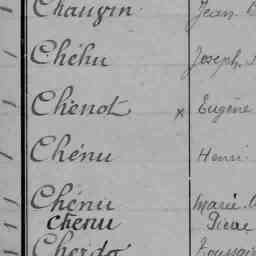 Chauvin Jean
Chéhu Joseph
Chenot x Eugène
Chénu Henri
Chénu Marie
Chenu Pierre
Cherdo Toussaint